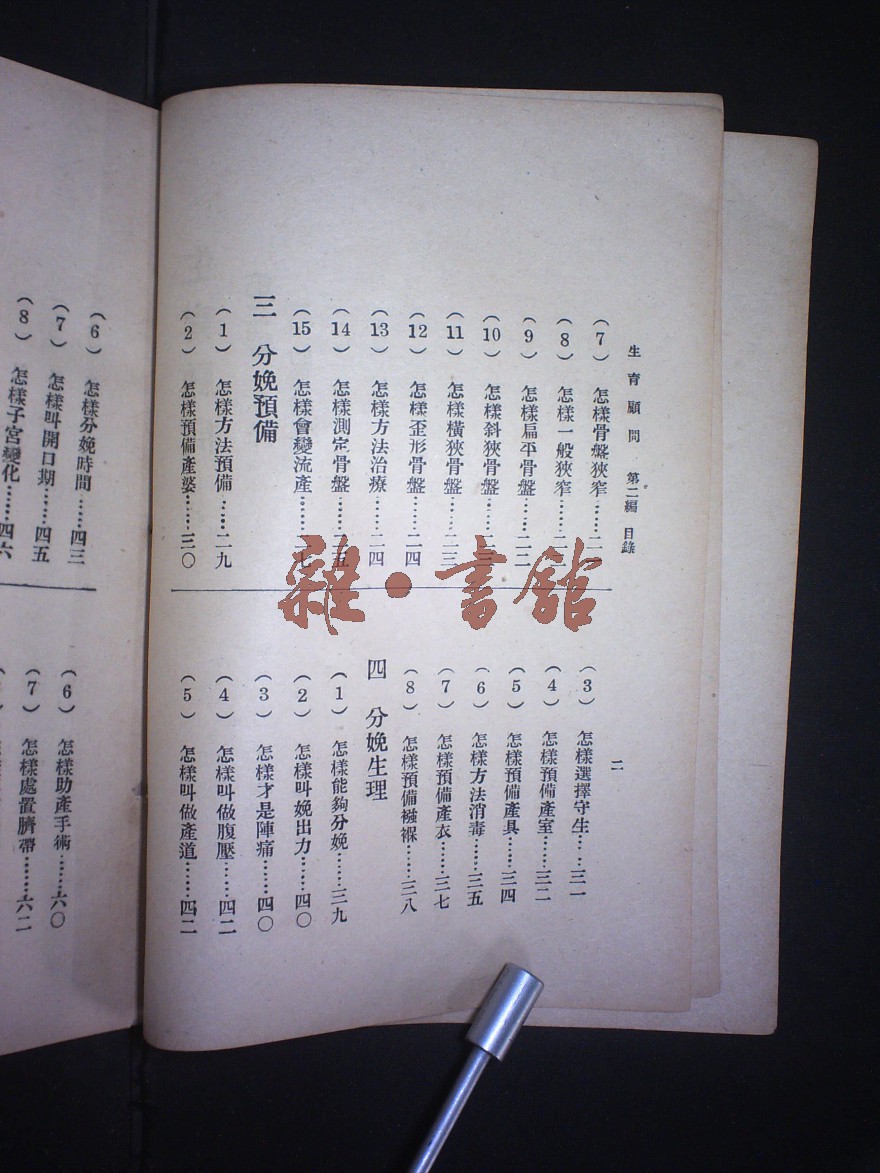 生育顧問 第二編 目錄
二
(7) 怎樣骨盤狹窄……二
(8) 怎樣一般狹窄……二
(9) 怎樣扁平骨盤……二二
(10) 怎樣斜狹骨盤……二
(11) 怎樣橫狹骨盤……二三
(12) 怎樣歪形骨盤……二四
(13) 怎樣方法治療……二四
(14) 怎樣測定骨盤……二五
(15) 怎樣會變流產……二七
三 分娩預備
(1) 怎樣方法預備……二九
(2) 怎樣預備產婆……三〇
(3) 怎樣選擇守生……三一
(4) 怎樣預備產室……三二
(5) 怎樣預備產具……三四
(6) 怎樣方法消毒……三五
(7) 怎樣預備產衣……三七
(8) 怎樣預備襁褓……三八
四 分娩生理
(1) 怎樣能夠分娩……三九
(2) 怎樣叫娩出力……四〇
(3) 怎樣才是陣痛……四〇
(4) 怎樣叫做腹壓……四二
(5) 怎樣叫做產道……四二
(6) 怎樣分娩時間……四三
(7) 怎樣叫開口期……四五
(8) 怎樣子宮變化……四六
(6) 怎樣助產手術……六〇
(7) 怎樣處置臍帶……六二
雜·書館